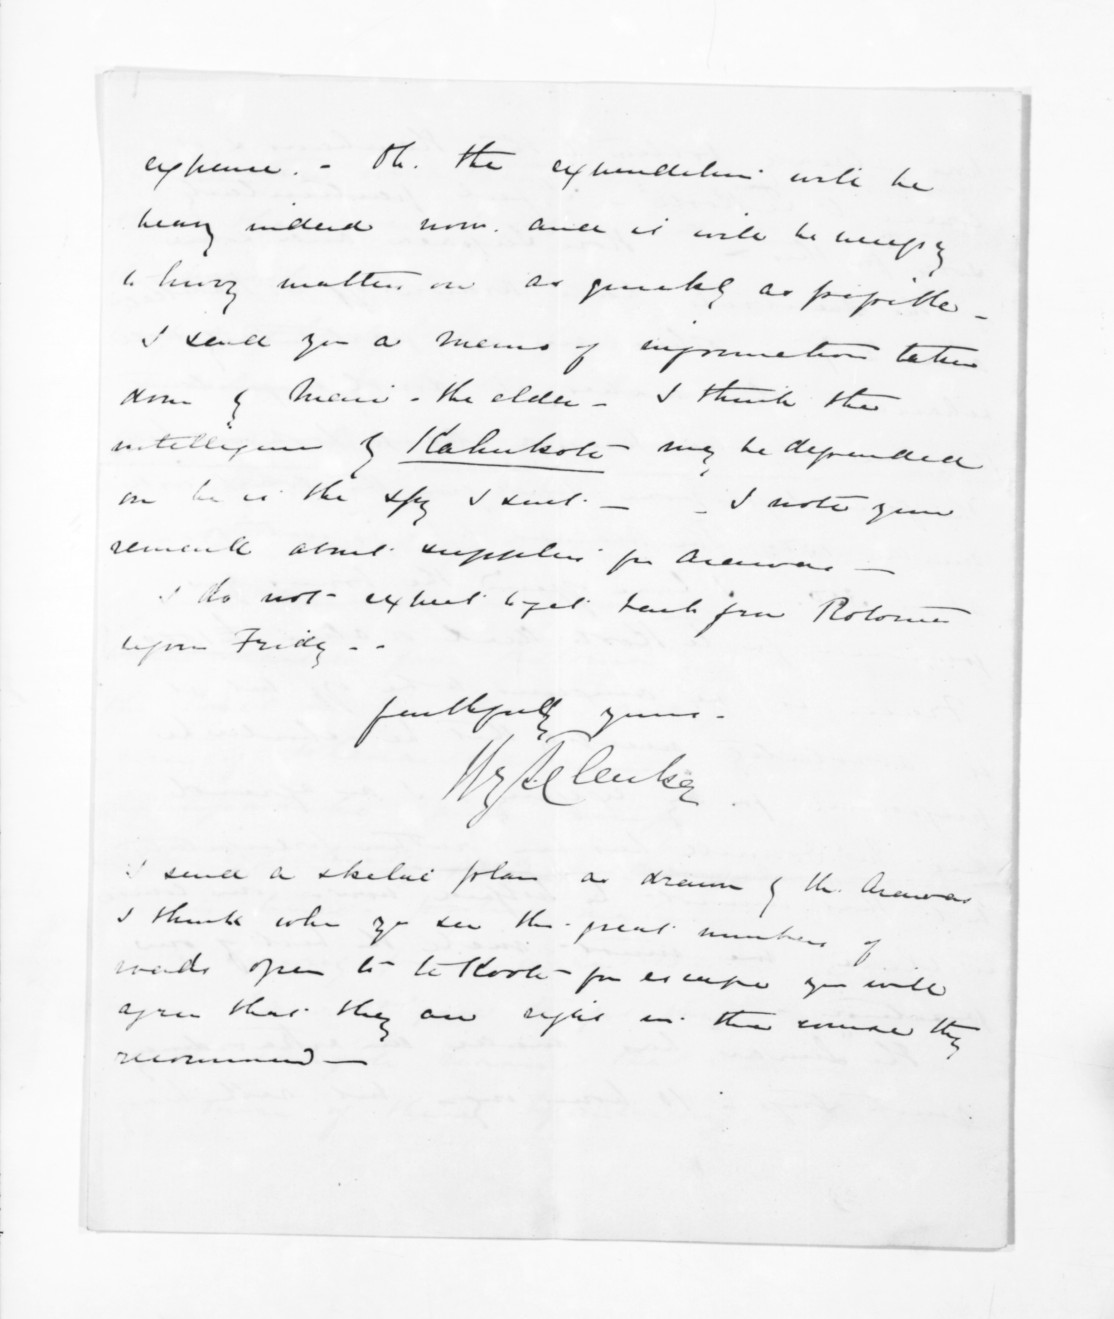 expense. - Oh. the expenditure will be
heavy indeed now. and it will be necessary
to hurry matters on as quickly as possible -
I send you a memo of information taken
down by Mair - the elder - I think the
intelligence of Kahukoti may be depended
on he is the spy I sent. - - I note your
remark about supplies for Arawas -
I do not expect to get back from Rotorua
upon Friday - -
faithfully yours -
Hy T Clarke
I send a skeleton plan as drawn by the Arawas
I think when you see the great numbers of
roads open to Te Kooti for escape you will
agree that they are right in the course they
recommend -